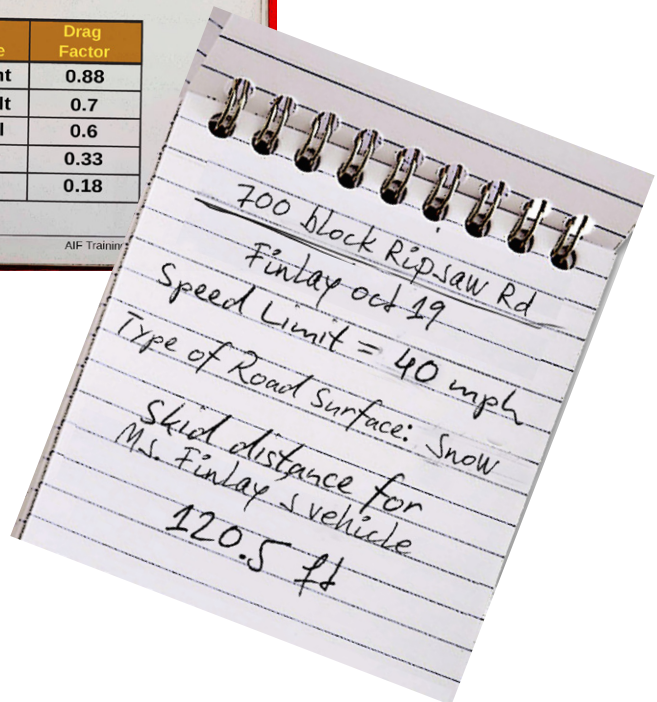 e
Drag
Factor
nt 0.88
lt 0.7
l 0.6
0.33
0.18
AIF Training
700 block Ripsaw Rd
Finlay oct 19
Speed Limit = 40 mph
Type of Road Surface: Snow
Skid distance for
Ms. Finlay s vehicle
120.5 ft